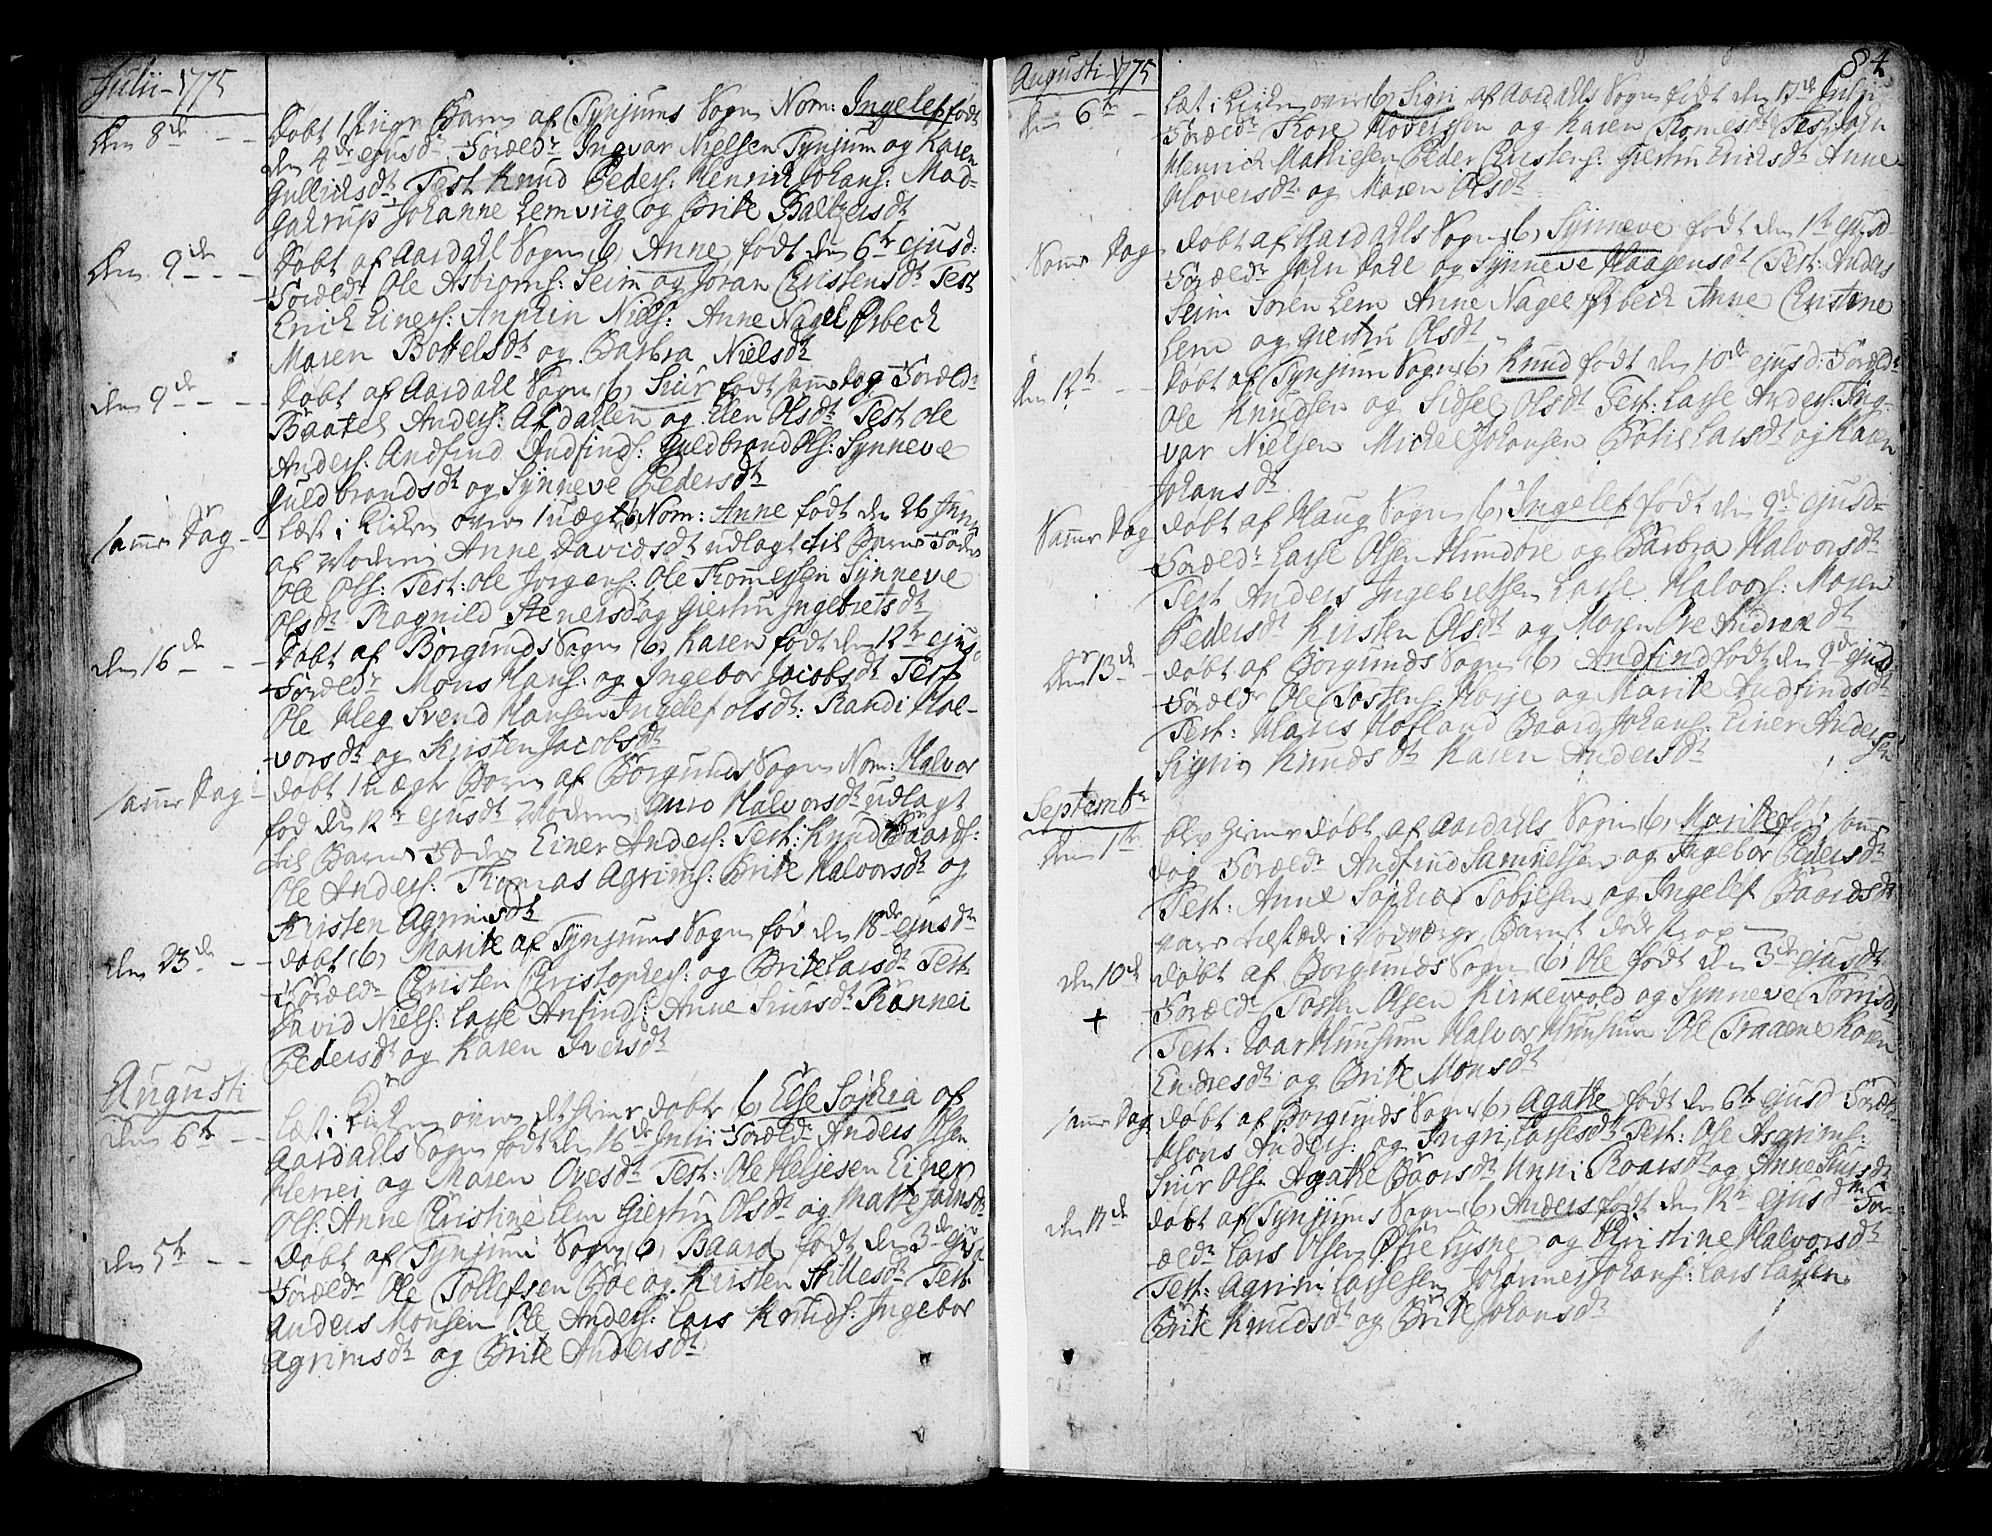 Julii 1775
den 8de Døbt 1 Pige Barn af Tynjums Sogn Nom: Ingelef født
den 4de ejusd: Foræld: Ingvar Nielsen Tynjum og Karen
Gullichsdt Test Knud Peders: Henrich Johans: Mad-
Gakrup Johanne Lemvig og Brite Baltzersdt
den 9de Døbt af Aardall Sogn (b) Anne født den 6te ejusd:
Foræld: Ole Asbiørns: Seim og Joran Christensdt Test
Erich Einers: Anfind Niels: Anne Nagel Ørbech
Maren Bottelsdt og Barbra Nielsdt
den 9de Døbt af Aardall Sogn (b) Siur født samme Dag Foræld:
Baatel Anders: Afdallen og Elen Olsdt Test Ole
Anders: Andfind Andfinds: Guldbrand Ols: Synneve
Guldbrandsdt og Synneve Pedersdt
samme Dag Læst i Kirken over 1 uægte Nom: Anne født den 26 Junii
af Moderen Anne Davidsdt udlagt til Barne Fader
Ole Ols: Test: Ole Jørgens: Ole Thommesen Synneve
Olsdt Ragnild Stenersdt og Giertru Ingebretsdt
den 16de Døbt af Borgunds Sogn (b) Karen født den 12te ejusd
Foræld: Mons Hans: og Ingebor Jacobsdt Test
Ole Heg Svend Hansen Ingelef Olsdt: Randi Hal-
vorsdt og Kristen Jacobsdt
samme Dag døbt 1 uægte Barn af Borgunds Sogn Nom: Halvor
fød den 12te ejusdt Moderen Guro Halvorsdt udlagt
til Barne Fader Einer Anders: Test: Knud Baards:
Ole Anders: Thomas Agrims: Brite Halvorsdt og
Kristen Agrimsdt
den 23de døbt (b) Marite af Tynjums Sogn fød den 18de ejusdt
Foræld: Christen Christophers: og Brite Larsdt Test:
David Niels: Lasse Anfinds: Anne Siursdt Rønnei
Pedersdt og Karen Iversdt
Augusti
den 6te Læst i Kirken over det hieme døbte (b) Else Sophia af
Aardalls Sogn født den 16de Julii Foræld: Anders Olsen
Hereid og Maren Ovesdt Test: Ole Heljesen Einer
Ols: Anne Christine Lem Giertru Olsdt og Matte Johnsdt
den 5te Døbt af Tynjum Sogn (b) Baard født den 3de ejusd
Foræld: Ole Tollefsen Bøe og Kristen Stillesdt Test
Anders Monsen Ole Anders: Lars Knuds: Ingebor
Agrimsdt og Brite Andersdt
84
Augusti 1775
den 6te Læst i Kirken over (b) Sigri af Aardalls Sogn født den 17de Julii
Foræld: Thore Hoversen og Karen Thomesdt Test: John
Henrich Mathiesen Peder Christens: Giertru Erichsdt Anne
Hoversdt og Maren Olsdt
Samme Dag døbt af Aardalls Sogn (b) Synneve født den 1te ejusd
Foræld: John Dahl og Synneve Haagensdt Test: Anders
Seim Søren Lem Anne Nagel Ørbech Anne Christine
Lem og Giertru Olsdt
den 12te døbt af Tynjum Sogn (b) Knud født den 10de ejusd: Foræld:
Ole Knudsen og Sidsel Olsdt Test: Lasse Anders: Ing-
var Nielsen Michel Johansen Botil Larsdt og Karen
Johansdt
Samme Dag døbt af Haug Sogn (b) Ingelef født den 9de ejusd
Foræld: Lasse Olsen Hundere og Barbra Halvorsdt
Test Anders Ingebretsen Lasse Halvors: Maren
Pedersdt Kristen Olsdt og Maren Ove Andreædt
den 13de døbt af Borgunds Sogn (b) Andfind født den 9de ejusd
Foræld: Ole Tostens: Horje og Marite Andfindsdt
Test: Hans Hofland Baard Johans: Einer Ander-
sen
Sigri Knudsdt Karen Andersdt
Septembr
den 1te blev hieme døbt af Aardalls Sogn (b) Marite fød samme
dag Foræld: Andfind Samuelsen og Ingebor Pedersdt
Test: Anne Sophia Tobiesen og Ingelef Baardsdt
vare tilstæde i Nødværge Barnet døde strax
den 10de døbt af Borgunds Sogn (b) Ole født den 3de ejusdt
+ Foræld: Tosten Olsen Kirkevold og Synneve Tomisdt
Test: Joar Husum Halvor Husum Ole Traaene Karen
Endresdt og Brite Monsdt
samme Dag døbt af Borgunds Sogn (b) Agathe født den 6te ejusd Foræld:
Mons Anders: og Ingri Lassesdt Test: Ole Asgrims:
Siur Ols: Agathe Baarsdt Unni Roarsdt og Anne Siursdt
den 17de døbt af Tynjums Sogn (b) Anders født den 12te ejusdm For-
æld: Lars Olsen Øfre Lysne og Christine Halvorsdt
Test: Agrim Lassesen Johannes Johans: Lars Larsen
Brite Knudsdt og Brite Johansdt